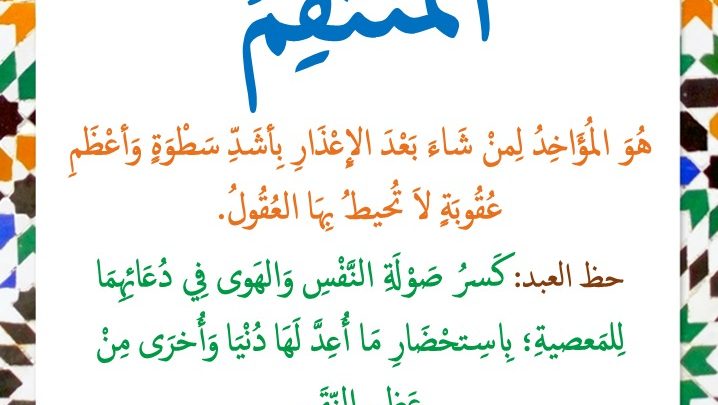 المُنْتَقِمُ
هُوَ المُؤَاخِذُ لِمنْ شَاءَ بَعْدَ الإِعْذَارِ بِأشَدِّ سَطْوَةٍ وَأعْظَمِ
عُقُوبَةٍ لاَ تُحيطُ بِهَا العُقُولُ.
حظ العبد: كَسرُ صَوْلَةِ النَّفْسِ وَالهَوى فِي دُعَائِهِمَا
لِلمَعصيةِ؛ بِاسِتحْضَارِ مَا أُعِدَّ لَهَا دُنْيَا وَأُخرَى مِنْ